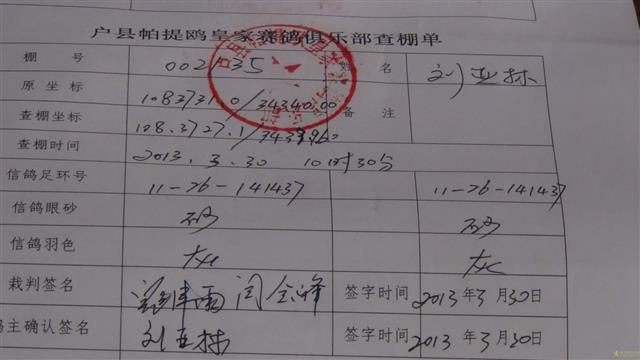 户县帕提鸥皇家赛鸽俱乐部查棚单
棚 号 002535 姓 名 刘亚林
原 坐 标 108.3731.0/343400.00
查棚坐标 108.3727.1/ 备 注
查棚时间 2013.3.30 10时30分
信鸽足环号 11-26-141437 11-26-141437
信鸽眼砂 砂 砂
信鸽羽色 灰 灰
裁判签名 签字时间 2013年3月30日
鸽主确认签名 刘亚林 签字时间 2013年3月30日